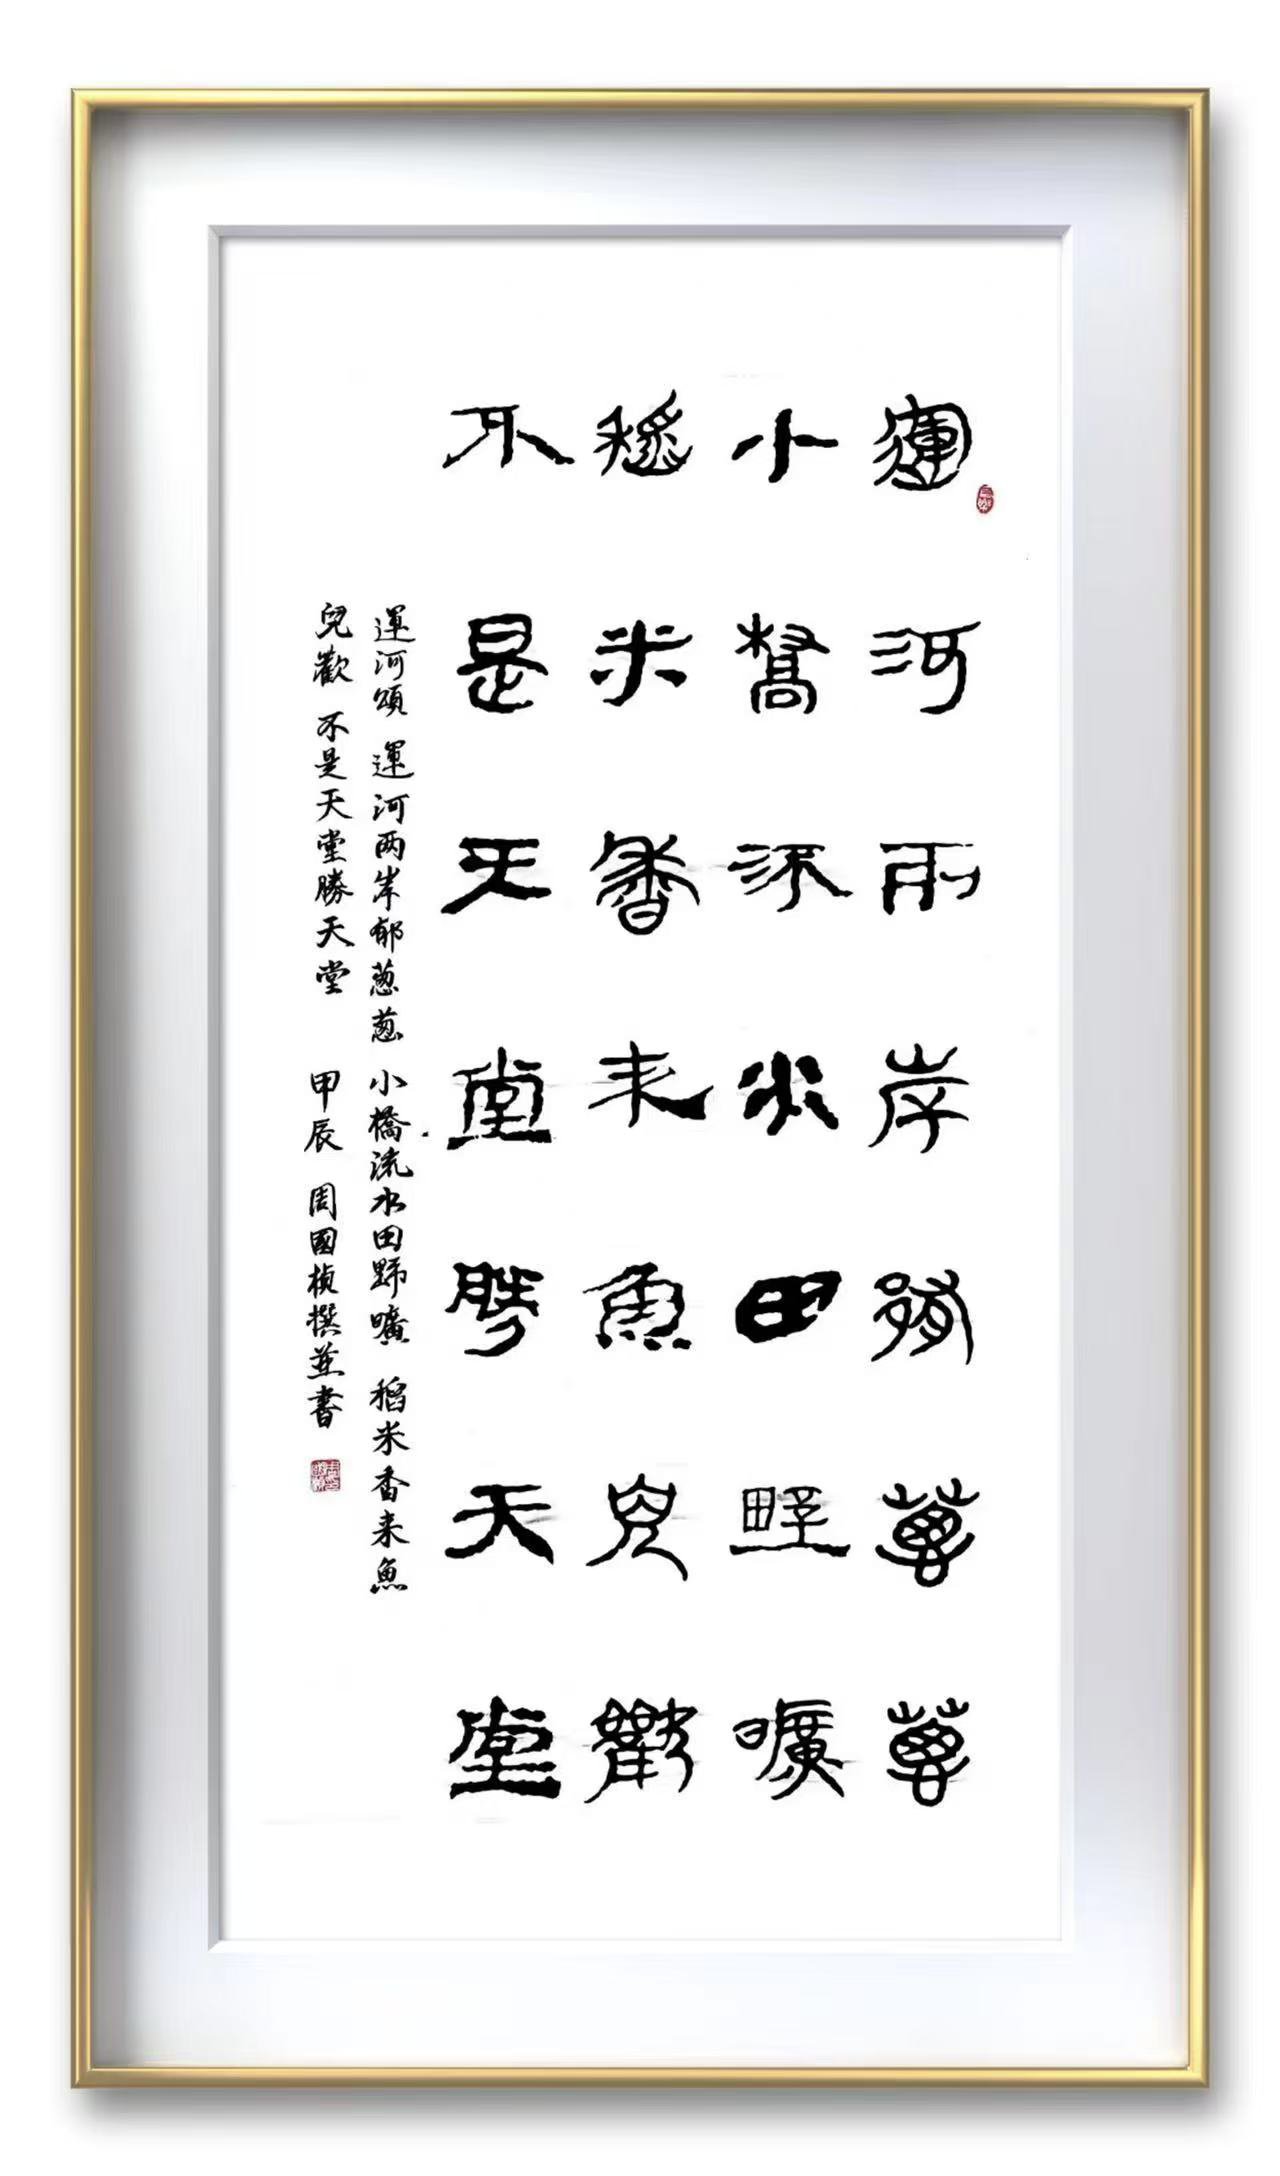 運河兩岸郁蔥蔥
小橋流水田野曠
稻米香來魚兒歡
不是天堂勝天堂
運河頌 運河两岸郁蔥蔥 小橋流水田野曠 稻米香来魚
兒歡 不是天堂勝天堂 甲辰 周國楨撰并書